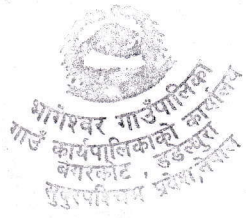 भागेश्वर गाउँपालिका
गाउँ कार्यपालिकाको कार्यालय
बगरकोट, डडेल्धुरा
सुदुरपश्चिम प्रदेश, नेपाल